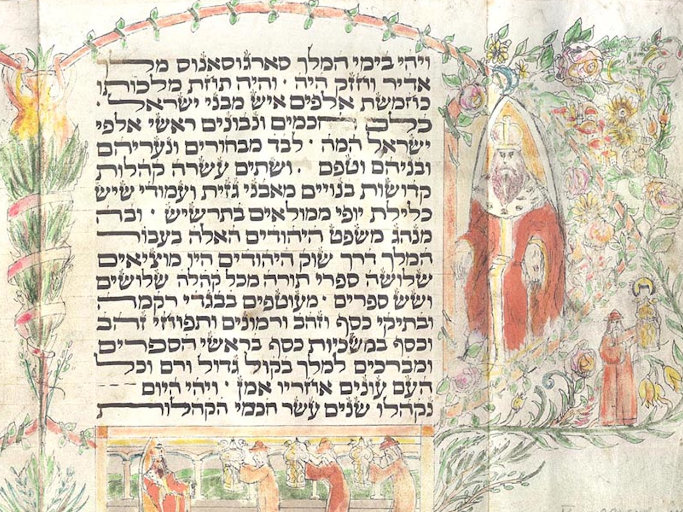 ויהי בימי המלך סארגוסאנוס מלך
אדיר וחזק היה · והיה תחת מלכותו
כחמשת אלפים איש מבני ישראל ·
כלם חכמים ונבונים ראשי אלפי
ישראל המה · לבד מבחורים ונעריהם
ובניהם וטפם · ושתים עשרה קהלות
קדושות בנויים מאבני גזית ועמודי שיש
כלילת יופי ממולאים בתרשיש · וכך
מנהג משפט היהודים האלה בעבור
המלך דרך שוק היהודים היו מוציאים
שלושה ספרי תורה מכל קהלה שלושים
ושש ספרים · מעוטפים בבגדי רקמה
ובתיקי כסף וזהב ורמונים ותפוחי זהב
וכסף במשכיות כסף בראשי הספרים
ומברכים למלך בקול גדול ורם וכל
העם עונים אחריו אמן · ויהי היום
נקהלו שנים עשר חכמי הקהלות